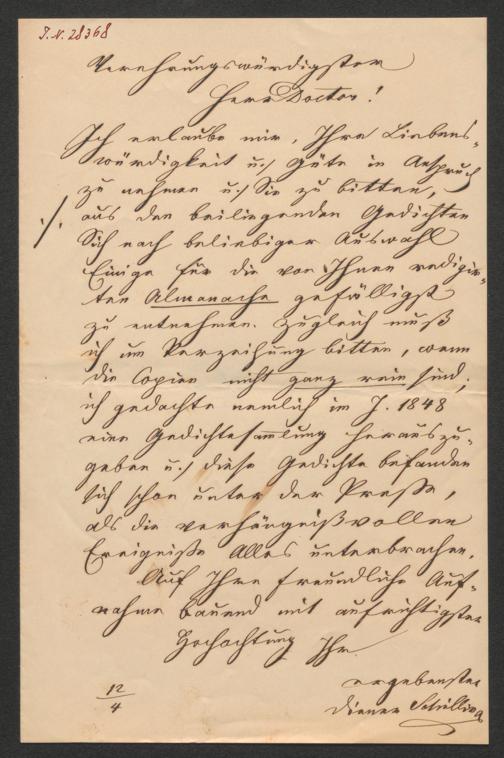 J. N. 28368
Verehrungswürdigster
Herr Doctor!
Ich erlaube mir, Ihre Liebens-
würdigkeit u./ Güte in Anspruch
zu nehmen u./ Sie zu bitten,
./. aus den beiliegenden Gedichten
Sich nach beliebiger Auswahl
Einige für die von Ihnen redigir-
ten Almanache gefälligst
zu entnehmen. Zugleich muß
ich um Verzeihung bitten, wenn
die Copien nicht ganz rein sind;
ich gedachte nemlich im J. 1848
eine Gedichtesammlung herauszu-
geben u./ diese Gedichte befanden
sich schon unter der Presse,
als die verhängnißvollen
Ereigniße Alles unterbrachen.
Auf Ihre freundliche Auf-
nahme bauend mit aufrichtigster
Hochachtung Ihr
ergebenster
Diener Schilling
12/4